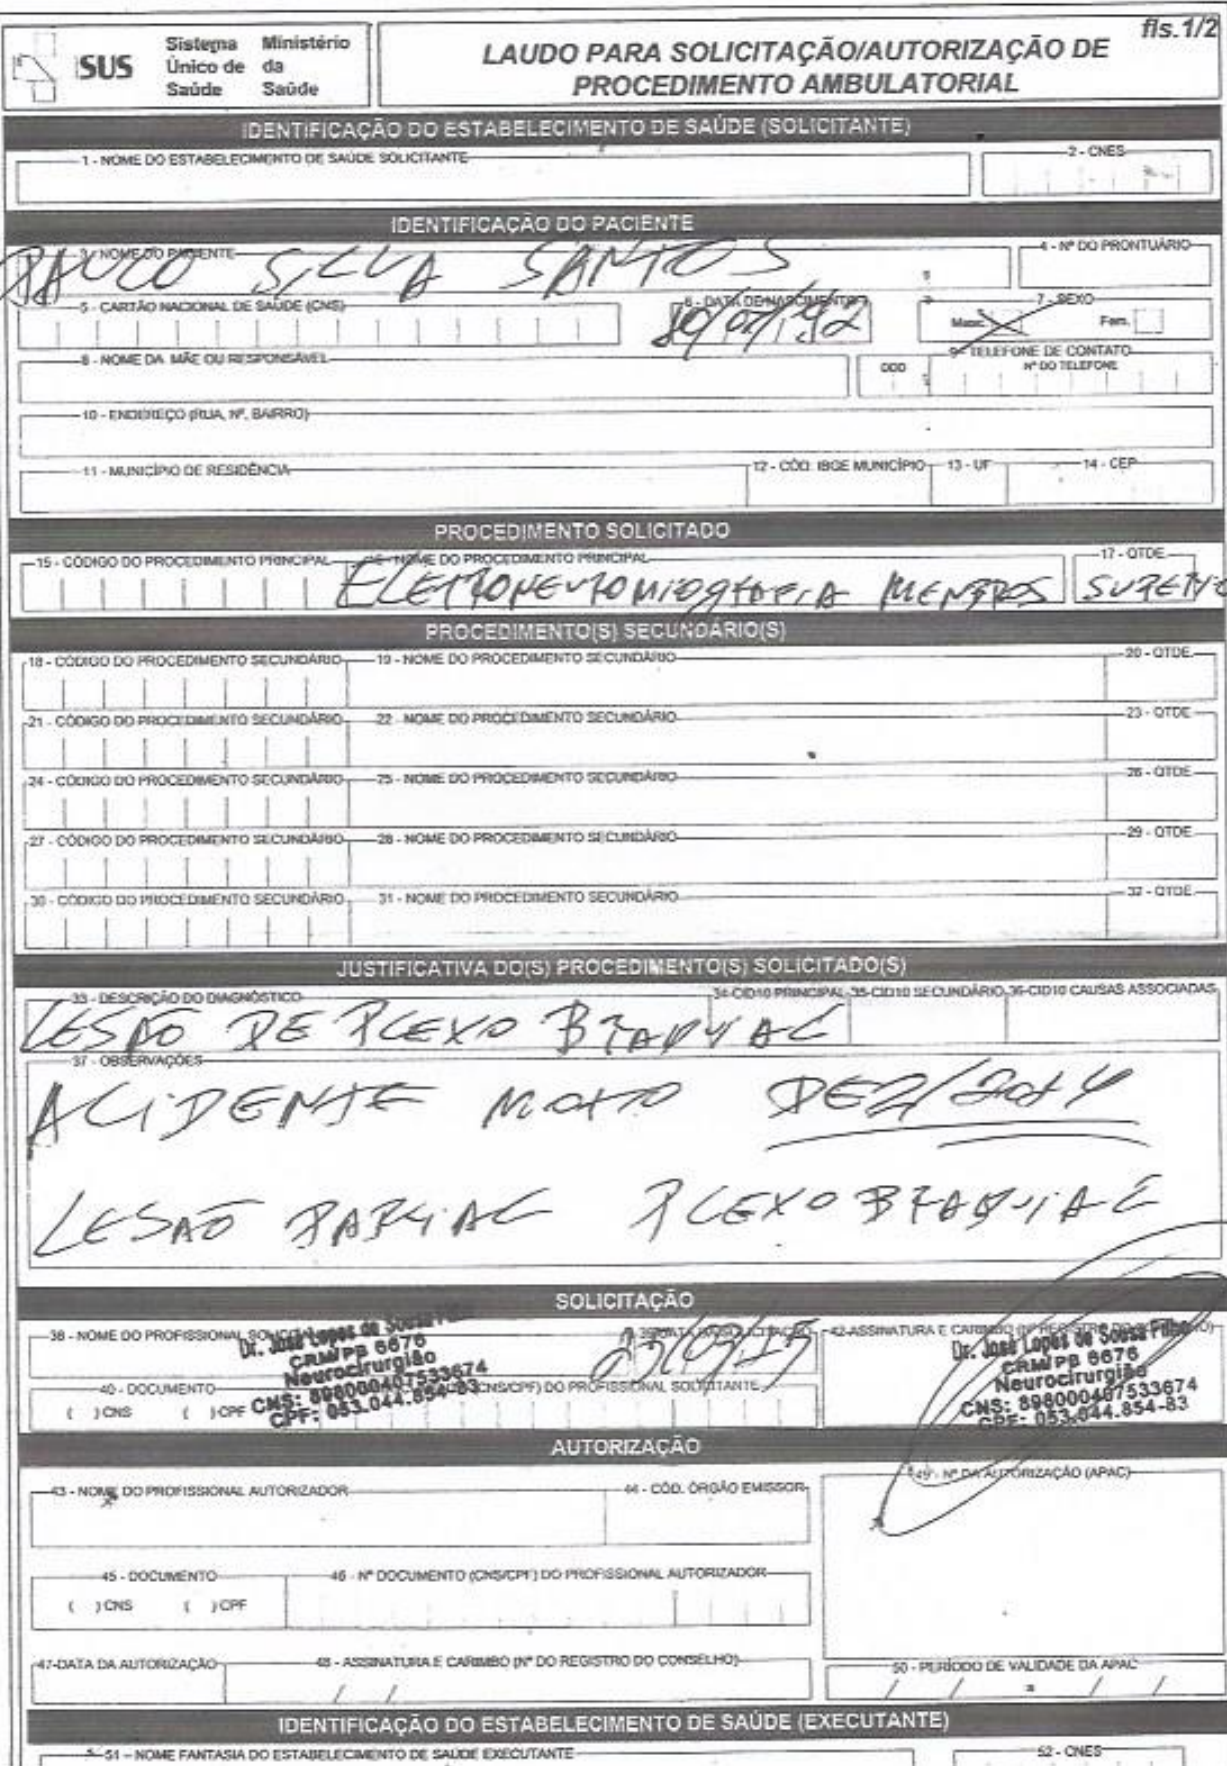 fls.1/2
SUS Sistema Único de Saúde Ministério da Saúde
LAUDO PARA SOLICITAÇÃO/AUTORIZAÇÃO DE PROCEDIMENTO AMBULATORIAL
IDENTIFICAÇÃO DO ESTABELECIMENTO DE SAÚDE (SOLICITANTE)
1 - NOME DO ESTABELECIMENTO DE SAÚDE SOLICITANTE 2 - CNES
IDENTIFICAÇÃO DO PACIENTE
3 - NOME DO PACIENTE 4 - Nº DO PRONTUÁRIO
PAULO SILVA SANTOS
5 - CARTÃO NACIONAL DE SAÚDE (CNS) 6 - DATA DE NASCIMENTO 7 - SEXO
Masc. Fem.
8 - NOME DA MÃE OU RESPONSÁVEL 9 - TELEFONE DE CONTATO
DDD Nº DO TELEFONE
10 - ENDEREÇO (RUA, Nº, BAIRRO)
11 - MUNICÍPIO DE RESIDÊNCIA 12 - CÓD. IBGE MUNICÍPIO 13 - UF 14 - CEP
PROCEDIMENTO SOLICITADO
15 - CÓDIGO DO PROCEDIMENTO PRINCIPAL 16 - NOME DO PROCEDIMENTO PRINCIPAL 17 - QTDE.
ELETRONEUROMIOGRAFIA MEMBROS
PROCEDIMENTO(S) SECUNDÁRIO(S)
18 - CÓDIGO DO PROCEDIMENTO SECUNDÁRIO 19 - NOME DO PROCEDIMENTO SECUNDÁRIO 20 - QTDE.
21 - CÓDIGO DO PROCEDIMENTO SECUNDÁRIO 22 - NOME DO PROCEDIMENTO SECUNDÁRIO 23 - QTDE.
24 - CÓDIGO DO PROCEDIMENTO SECUNDÁRIO 25 - NOME DO PROCEDIMENTO SECUNDÁRIO 26 - QTDE.
27 - CÓDIGO DO PROCEDIMENTO SECUNDÁRIO 28 - NOME DO PROCEDIMENTO SECUNDÁRIO 29 - QTDE.
30 - CÓDIGO DO PROCEDIMENTO SECUNDÁRIO 31 - NOME DO PROCEDIMENTO SECUNDÁRIO 32 - QTDE.
JUSTIFICATIVA DO(S) PROCEDIMENTO(S) SOLICITADO(S)
33 - DESCRIÇÃO DO DIAGNÓSTICO 34-CID10 PRINCIPAL 35-CID10 SECUNDÁRIO 36-CID10 CAUSAS ASSOCIADAS
LESÃO DE PLEXO BRAQUIAL
37 - OBSERVAÇÕES
ACIDENTE MOTO DEZ/2014
LESÃO PARCIAL PLEXO BRAQUIAL
SOLICITAÇÃO
38 - NOME DO PROFISSIONAL SOLICITANTE 39 - DATA DA SOLICITAÇÃO 42-ASSINATURA E CARIMBO (Nº REGISTRO DO CONSELHO)
Dr. José Lopes de Sousa Filho
CRM/PB 6676
Neurocirurgião
CNS: 898000407533674
CPF: 053.044.854-83
40 - DOCUMENTO (CNS/CPF) DO PROFISSIONAL SOLICITANTE
( ) CNS ( ) CPF
Dr. José Lopes de Sousa Filho
CRM/PB 6676
Neurocirurgião
CNS: 898000407533674
CPF: 053.044.854-83
AUTORIZAÇÃO
43 - NOME DO PROFISSIONAL AUTORIZADOR 44 - CÓD. ÓRGÃO EMISSOR 49 - Nº DA AUTORIZAÇÃO (APAC)
45 - DOCUMENTO 46 - Nº DOCUMENTO (CNS/CPF) DO PROFISSIONAL AUTORIZADOR
( ) CNS ( ) CPF
47-DATA DA AUTORIZAÇÃO 48 - ASSINATURA E CARIMBO (Nº DO REGISTRO DO CONSELHO) 50 - PERÍODO DE VALIDADE DA APAC
/ / / / a / /
IDENTIFICAÇÃO DO ESTABELECIMENTO DE SAÚDE (EXECUTANTE)
51 - NOME FANTASIA DO ESTABELECIMENTO DE SAÚDE EXECUTANTE 52 - CNES